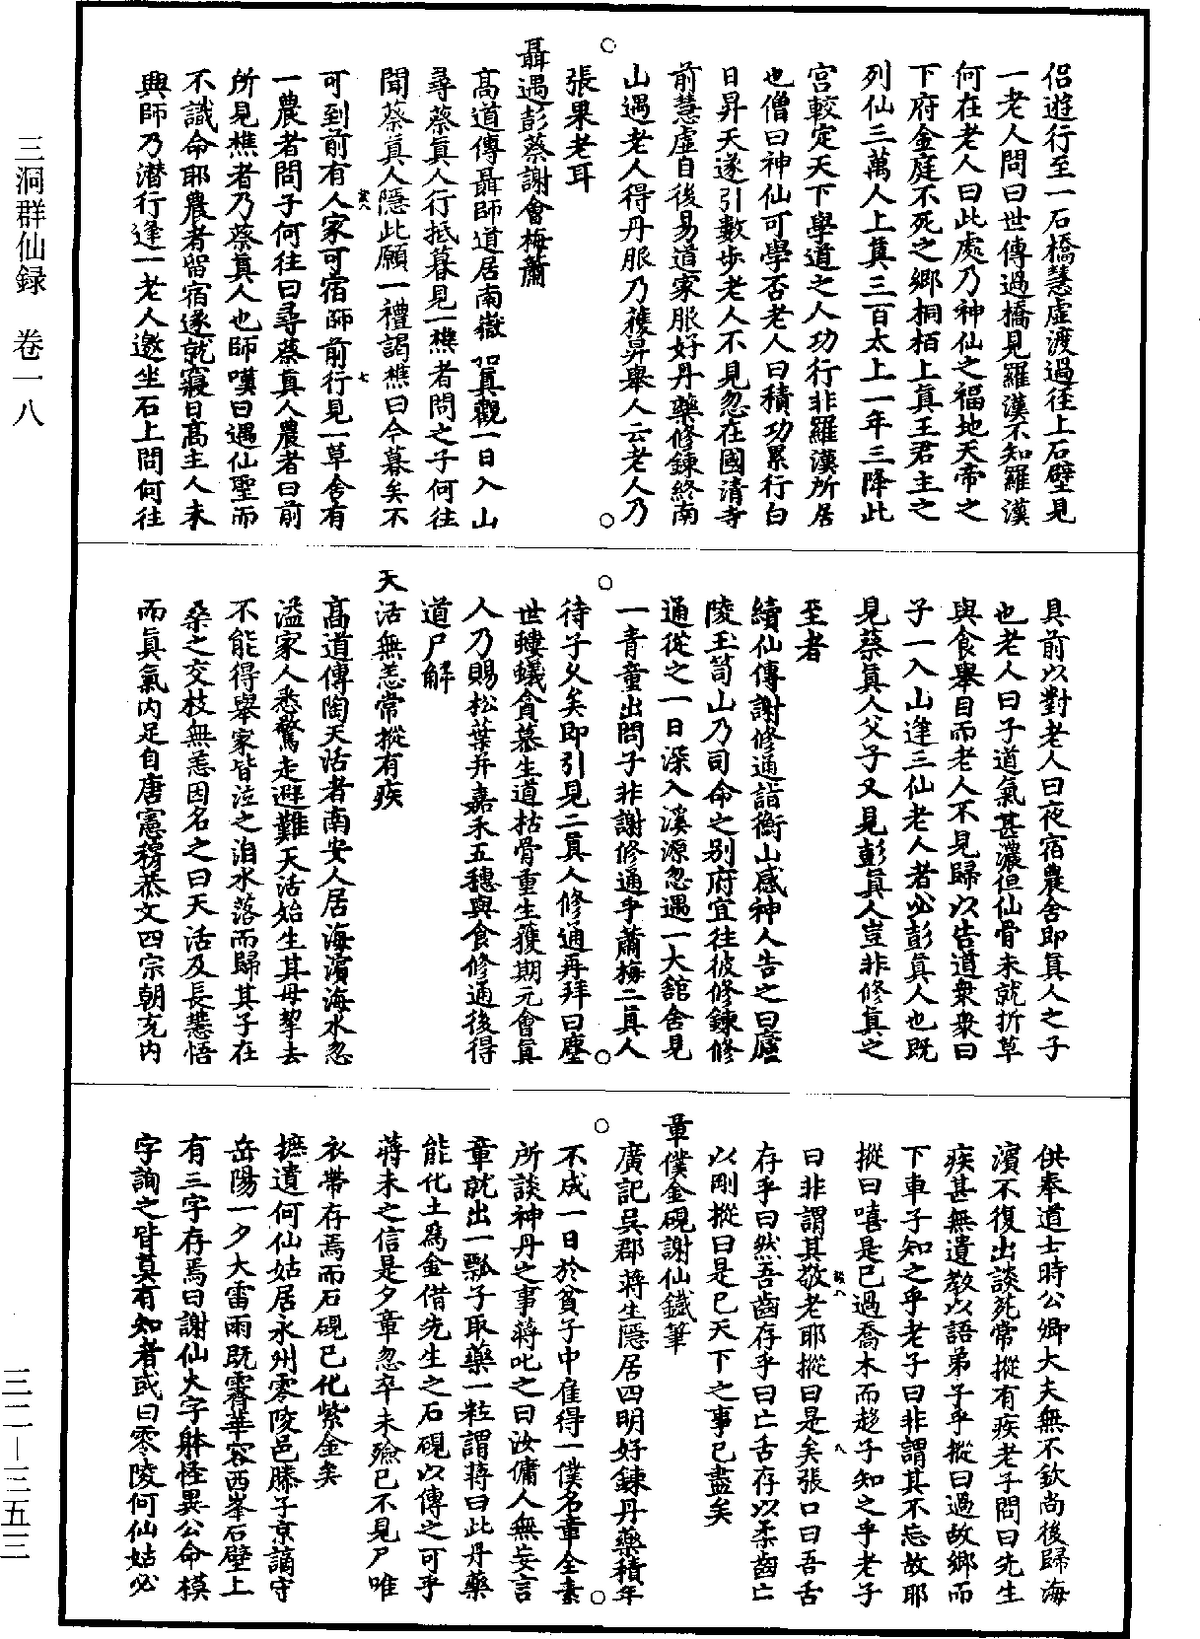 三洞群仙録　卷一八
侶遊行至一石橋慧虛渡過徑上石壁見
一老人問曰世傳過橋見羅漢不知羅漢
何在老人曰此處乃神仙之福地天帝之
下府金庭不死之鄉桐栢上真王君主之
列仙三萬人上真三百太上一年三降此
宮較定天下學道之人功行非羅漢所居
也僧曰神仙可學否老人曰積功累行白
日昇天遂引數步老人不見忽在國清寺
前慧虛自後易道家服好丹藥修鍊終南
山遇老人得丹服乃獲昇舉人云老人乃
張果老耳
聶遇彭蔡謝會梅蕭
高道傳聶師道居南嶽招真觀一日入山
尋蔡真人行抵暮見一樵者問之子何往
聞蔡真人隱此願一禮謁樵曰今暮矣不
可到前有人家可宿師前行見一草舍有
一農者問子何往曰尋蔡真人農者曰前
所見樵者乃蔡真人也師嘆曰遇仙聖而
不識命耶農者留宿遂就寢日高主人未
興師乃潛行逢一老人邀坐石上問何往
具前以對老人曰夜宿農舍即真人之子
也老人曰子道氣甚濃但仙骨未就折草
與食舉目而老人不見歸以告道衆衆曰
子一入山逢三仙老人者必彭真人也既
見蔡真人父子又見彭真人豈非修真之
至者
續仙傳謝修通詣衡山感神人告之曰廬
陵玉笥山乃司命之别府宜往彼修鍊修
通從之一日深入溪源忽遇一大舘舍見
一青童出問子非謝修通乎蕭梅二真人
待子乆矣即引見二真人修通再拜曰塵
世螻蟻貪慕生道枯骨重生獲期元會真
人乃賜松葉并嘉禾五穗與食修通後得
道尸解
天活無恙常摐有疾
高道傳陶天活者南安人居海濱海水忽
溢家人悉驚走避難天活始生其母挈去
不能得舉家皆泣之洎水落而歸其子在
桑之交枝無恙因名之曰天活及長慧悟
而真氣内足自唐憲穆恭文四宗朝充内
供奉道士時公卿大夫無不欽尚後歸海
濱不復出談死常摐有疾老子問曰先生
疾甚無遺教以語弟子乎摐曰過故鄉而
下車子知之乎老子曰非謂其不忘故耶
摐曰嘻是已過喬木而趍子知之乎老子
曰非謂其敬老耶摐曰是矣張口曰吾舌
存乎曰然吾齒存乎曰亡舌存以柔齒亡
以剛摐曰是已天下之事已盡矣
章僕金硯謝仙鐵筆
廣記吳郡蔣生隱居四明好鍊丹藥積年
不成一日於貧子中雇得一僕名章全素
所談神丹之事蔣叱之曰汝傭人無妄言
章就出一瓢子取藥一粒謂蔣曰此丹藥
能化土爲金借先生之石硯以傳之可乎
蔣未之信是夕章忽卒未殮已不見尸唯
衣帶存焉而石硯已化紫金矣
摭遺何仙姑居永州零陵邑滕子京謫守
岳陽一夕大雷雨既霽華容西峯石壁上
有三字存焉曰謝仙火字躰怪異公命模
字詢之皆莫有知者或曰零陵何仙姑必
三二—三五三